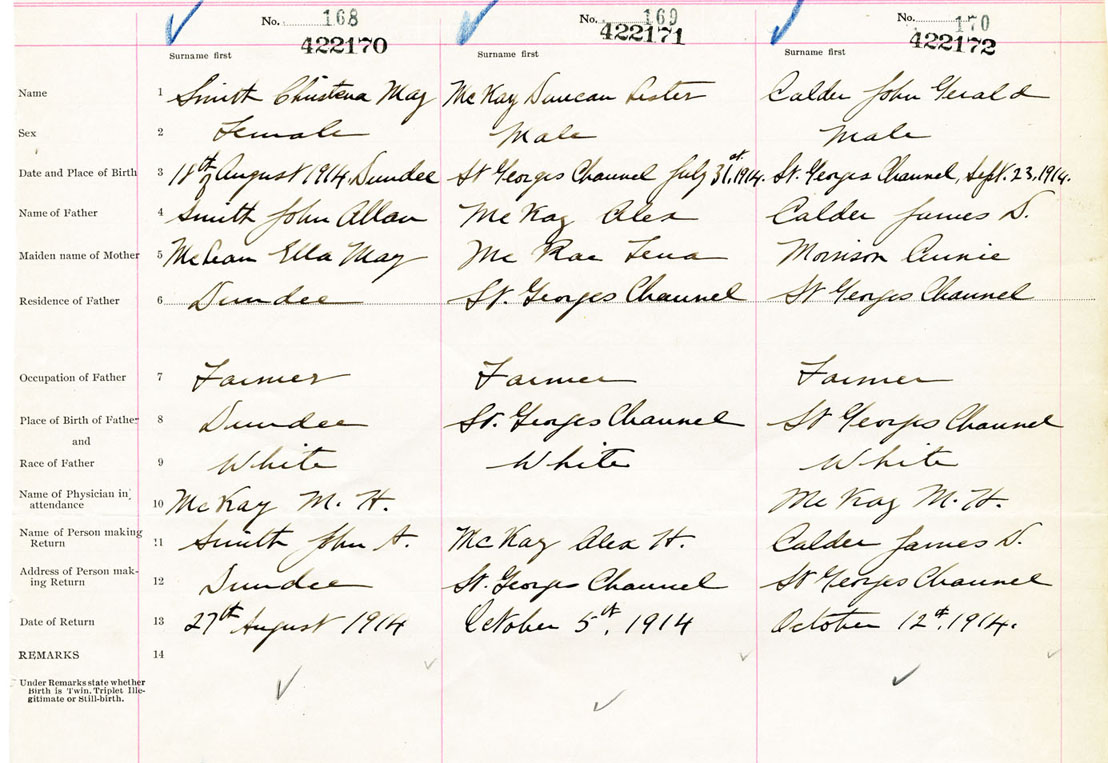 No. 168 No. 169 No. 170
422170 422171 422172
Surname first Surname first Surname first
Name 1 Smith Christena May McKay Duncan Lester Calder John Gerald
Sex 2 Female Male Male
Date and Place of Birth 3 18th of August 1914, Dundee St Georges Channel July 31st, 1914. St. Georges Channel, Sept. 23, 1914.
Name of Father 4 Smith John Allan McKay Alex Calder James D.
Maiden name of Mother 5 McLean Ella May McRae Lena Morrison Annie
Residence of Father 6 Dundee St. Georges Channel St Georges Channel
Occupation of Father 7 Farmer Farmer Farmer
Place of Birth of Father 8 Dundee St. Georges Channel St Georges Channel
and
Race of Father 9 White White White
Name of Physician in attendance 10 McKay M. H. McKay M. H.
Name of Person making Return 11 Smith John A. McKay Alex H. Calder James D.
Address of Person mak-ing Return 12 Dundee St. Georges Channel St Georges Channel
Date of Return 13 27th August 1914 October 5th, 1914 October 12th, 1914.
REMARKS 14
Under Remarks state whether
Birth is Twin, Triplet Ille-
gitimate or Still-birth.